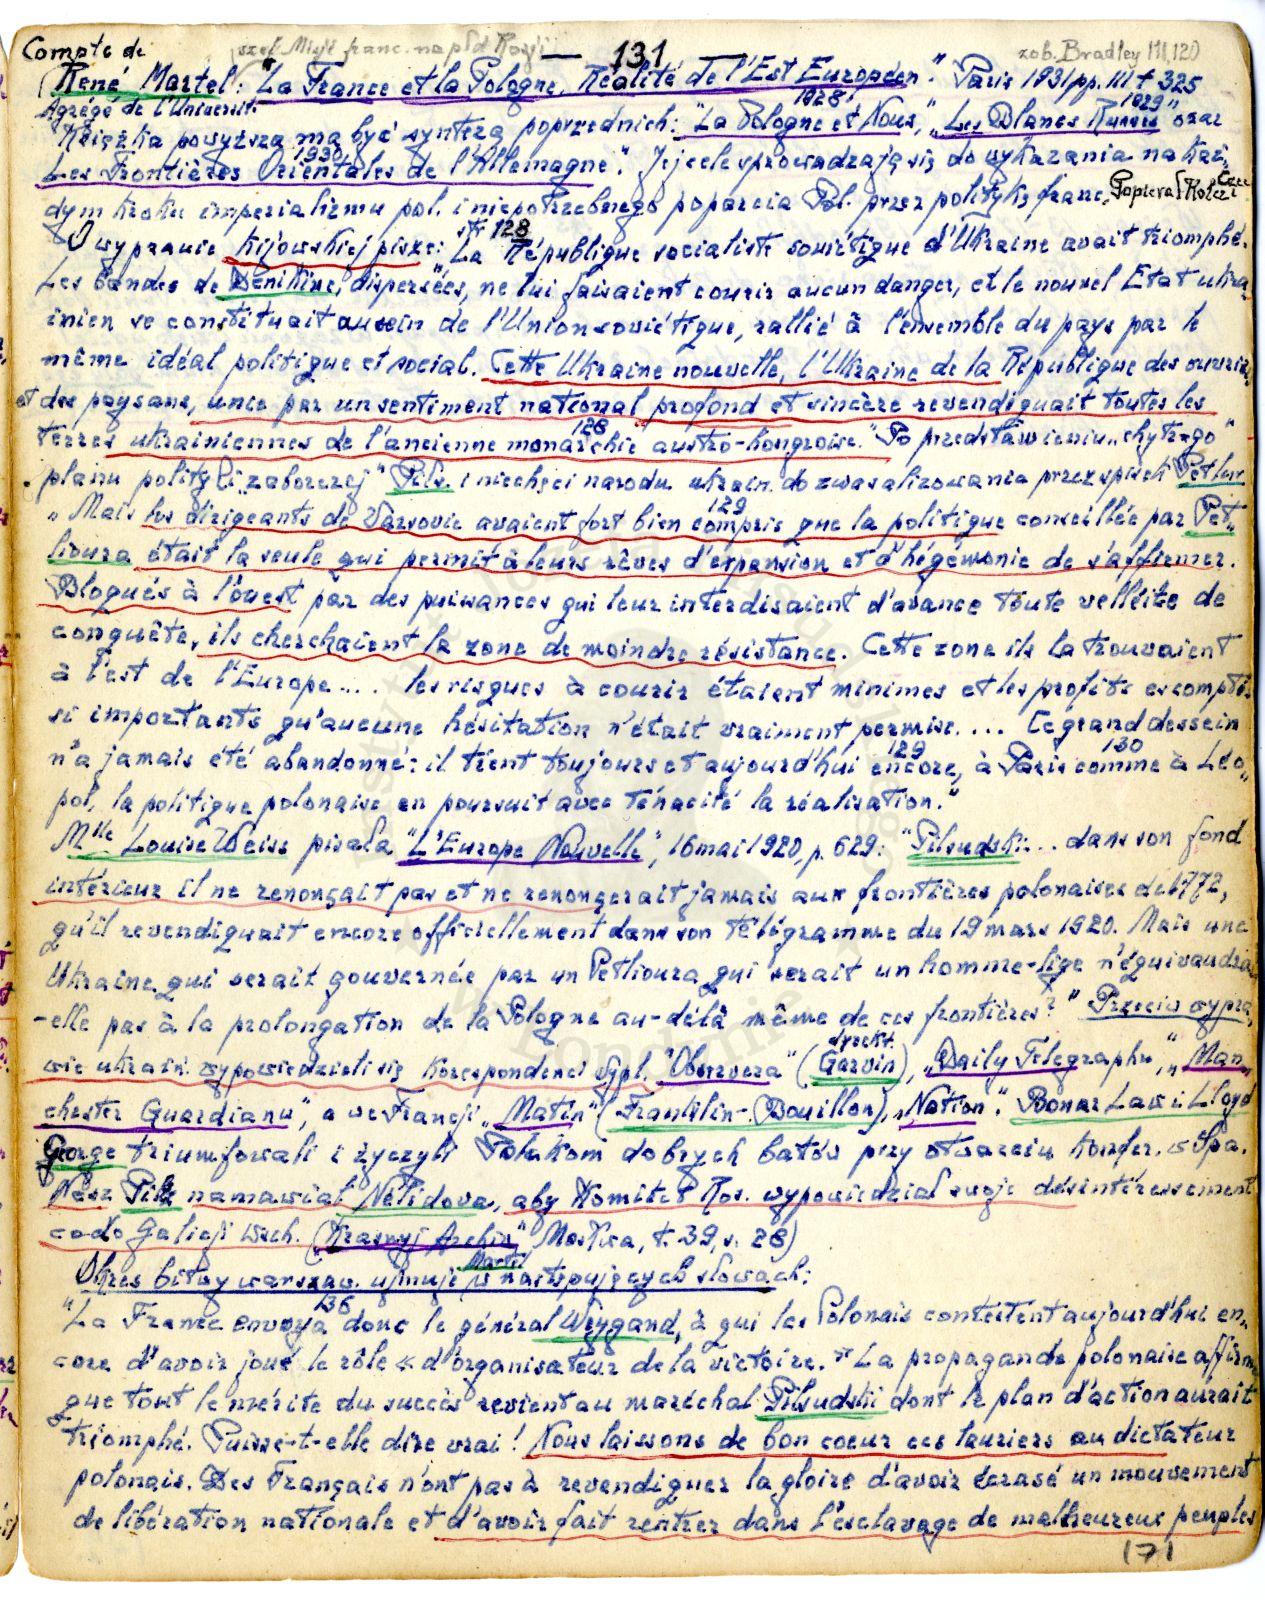 Compte de szef Misji franc. na płd Rosji — 131 zob. Bradley III, 120
(René Martel: "La France et la Pologne, Réalité de l'Est Européen." Paris 1931 pp. III + 325
Agrégé de l'Universit. 1928 1929
Książka powyższa ma być syntezą poprzednich: "La Pologne et Nous", "Les Blancs Russes" oraz
1930
Les Frontières Orientales de l'Allemagne". Jej cele sprowadzają się do wykazania na każ-
dym kroku imperializmu pol. i niepotrzebnego poparcia Pol. przez politykę franc. Popierał
str. 128
O wyprawie kijowskiej pisze: La République socialiste soviétique d'Ukraine avait triomphé.
Les bandes de Denikine, dispersées, ne lui faisaient courir aucun danger, et le nouvel Etat ukra-
inien se constituait au sein de l'Union soviétique, rallié à l'ensemble du pays par le
même idéal politique et social. Cette Ukraine nouvelle, l'Ukraine de la République des ouvriers
et des paysans, unie par un sentiment national profond et sincère revendiquait toutes les
128
terres ukrainiennes de l'ancienne monarchie austro-hongroise." Po przedstawieniu "chytrego"
planu polityki "zaborczej" Piłs. i niechęci narodu ukrain. do zwasalizowania przez spisek Petlury
129
"Mais les dirigeants de Varsovie avaient fort bien compris que la politique conseillée par Pet-
lioura était la seule qui permit à leurs rêves d'expansion et d'hégémonie de s'affirmer.
Bloqués à l'ouest par des puissances qui leur interdisaient d'avance toute velléité de
conquête, ils cherchaient la zone de moindre résistance. Cette zone ils la trouvaient
à l'est de l'Europe.... les risques à courir étaient minimes et les profits escomptés
si importants qu'aucune hésitation n'était vraiment permise.... Ce grand dessein
129 130
n'a jamais été abandonné: il tient toujours et aujourd'hui encore, à Paris comme à Léo-
pol, la politique polonaise en poursuit avec ténacité la réalisation."
Mlle Louise Weiss pisała "L'Europe Nouvelle", 16 mai 1920, p. 629: "Pilsudski... dans son fond
intérieur il ne renonçait pas et ne renoncerait jamais aux frontières polonaises de 1772,
qu'il revendiquait encore officiellement dans son télégramme du 19 mars 1920. Mais une
Ukraine qui serait gouvernée par un Petlioura qui serait un homme-lige n'équivaudrait
-elle pas à la prolongation de la Pologne au-délà même de ces frontières?" Przeciw wypra-
dyrekt.
wie ukraiń. wypowiedzieli się korespondenci "Observera" (Garvin), "Daily Telegraphu", "Man-
chester Guardianu", a we Francji "Matin" (Franklin-Bouillon), "Nation". Bonar Law i Lloyd
George triumfowali i życzyli Polakom dobrych batów przy otwarciu konfer. w Spa.
Nasz Piltz namawiał Nelidova, aby Komitet Ros. wypowiedział swoje désintéressement
co do Galicji Wsch. ("Krasnyj Archiv", Moskwa, t. 39, s. 28)
Martel
Okres bitwy warszaw. ujmuje w następujących słowach:
136
"La France envoya donc le général Weygand, à qui les Polonais contestent aujourd'hui en-
core d'avoir joué le rôle « d'organisateur de la victoire. » La propagande polonaise affirme
que tout le mérite du succès revient au maréchal Pilsudski dont le plan d'action aurait
triomphé. Puisse-t-elle dire vrai! Nous laissons de bon coeur ces lauriers au dictateur
polonais. Des Français n'ont pas à revendiquer la gloire d'avoir écrasé un mouvement
de libération nationale et d'avoir fait rentrer dans l'esclavage de malheureux peuples
171